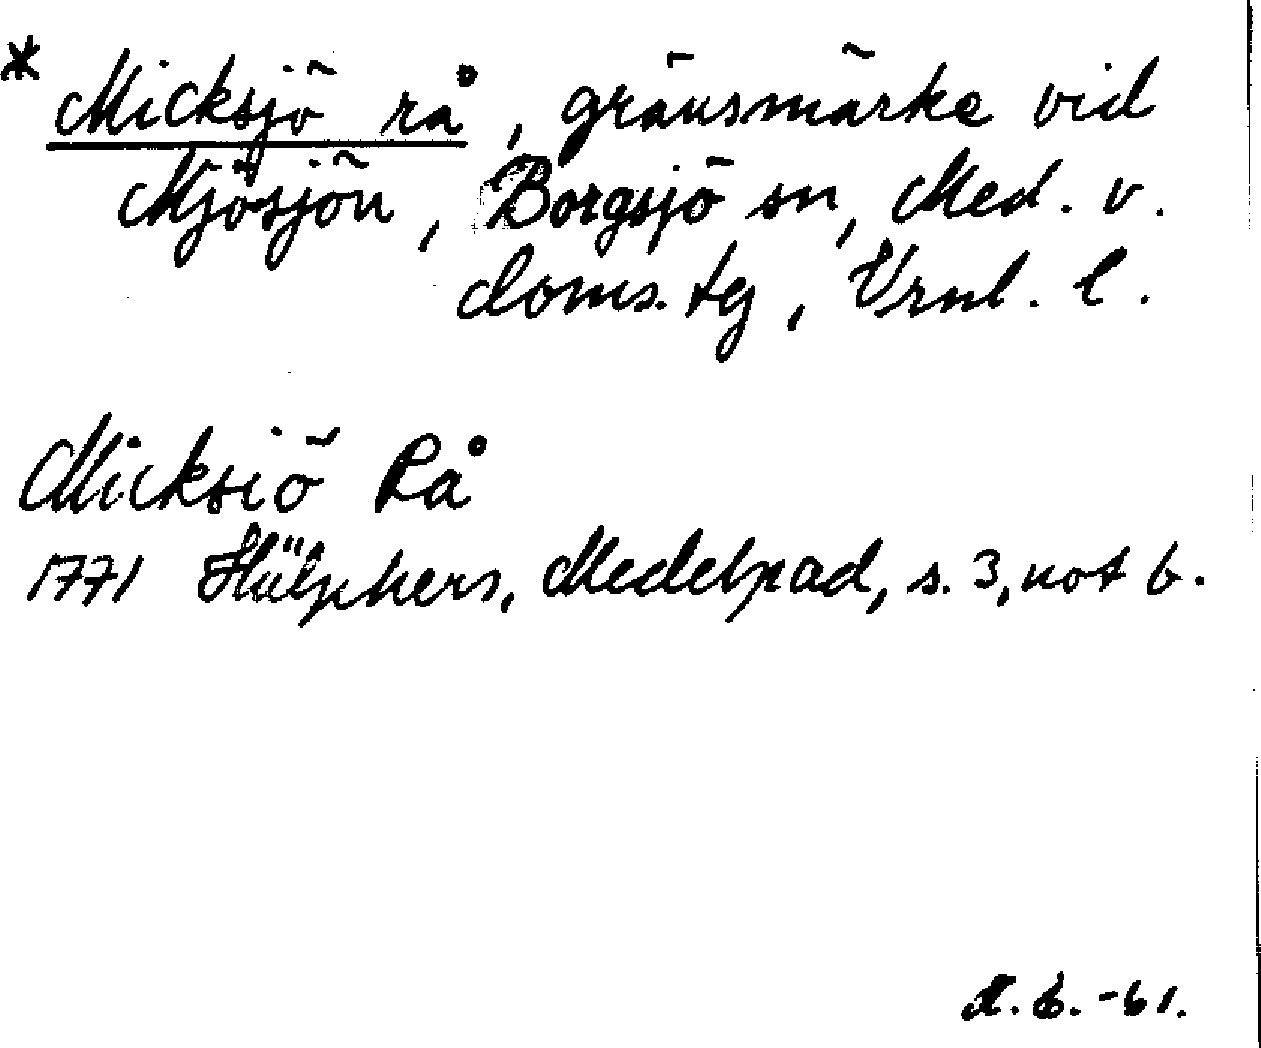 * Micksjö rå, gränsmärke vid
Mjösjön, Borgsjö sn, Med. v.
doms. tg, Vrnl. l.
Micksiö Rå
1771 Hülphers, Medelpad, s. 3, not 6.
-61.